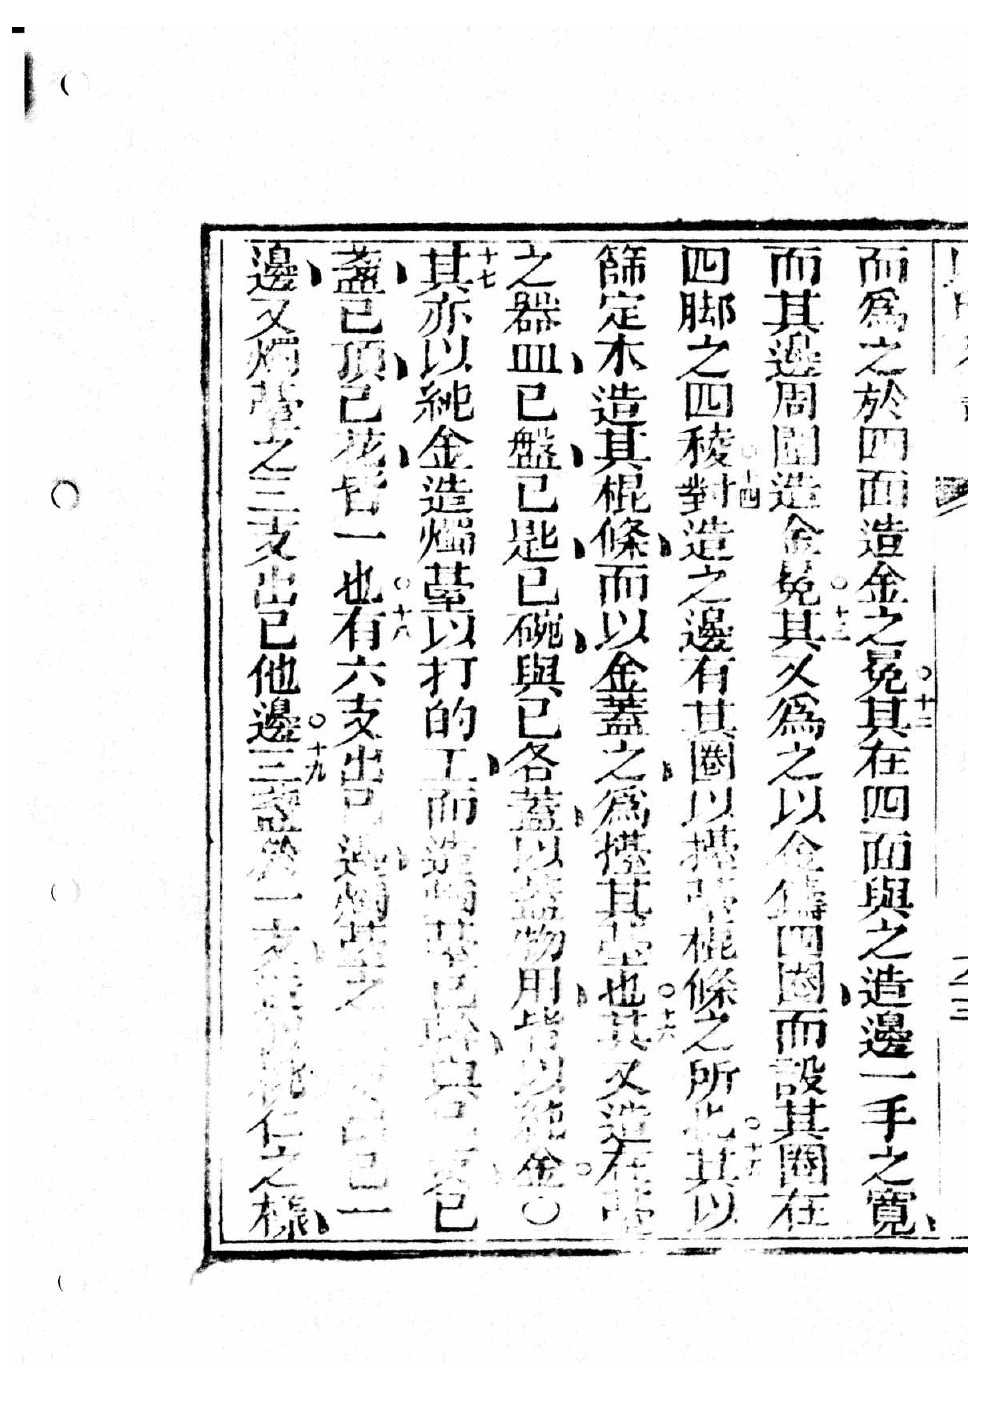 而爲之於四面造金之冕○十二其在四面與之造邊一手之寬
而其邊周圍造金冕○十三其又爲之以金鑄四圈而設其圈在
四脚之四稜○十四對造之邊有其圈以擡棍條之所也其以
篩定木造其棍條而以金蓋之爲擡其臺也○十六其又造在臺
之器皿已盤已匙已碗與已各蓋以蓋物用皆以純金○
十七其亦以純金造燭臺以打的工而造燭臺已與已
盞已頂已花皆一也○十八有六支出已邊燭臺之出已一
邊又燭臺之三支出已他邊○十九三盞於一支仁之樣